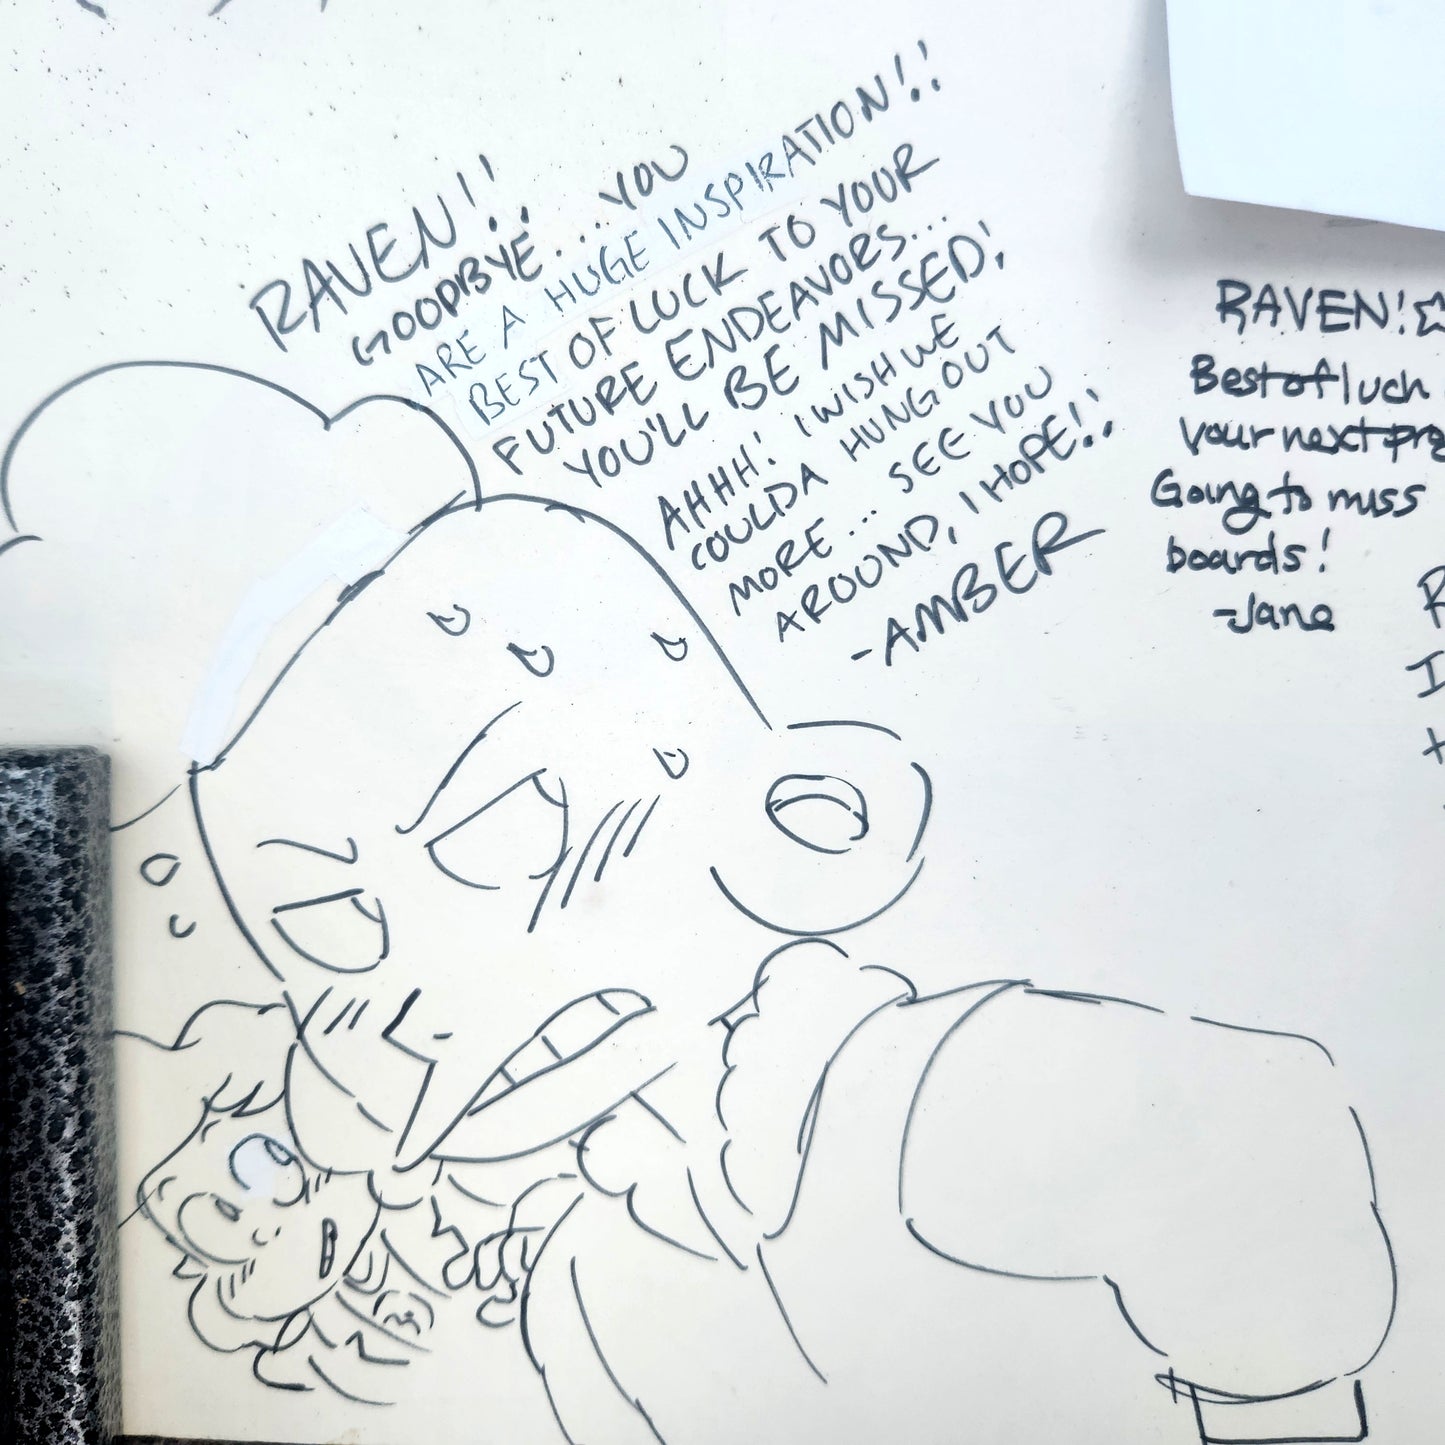 RAVEN!!
GOODBYE....YOU
ARE A HUGE INSPIRATION!!
BEST OF LUCK TO YOUR
FUTURE ENDEAVORS...
YOU'LL BE MISSED!
AHHH! I WISH WE
COULDA HUNG OUT
MORE... SEE YOU
AROUND, I HOPE!!
-AMBER
RAVEN!
Best of luch
your next
Going to miss
boards!
-Jane